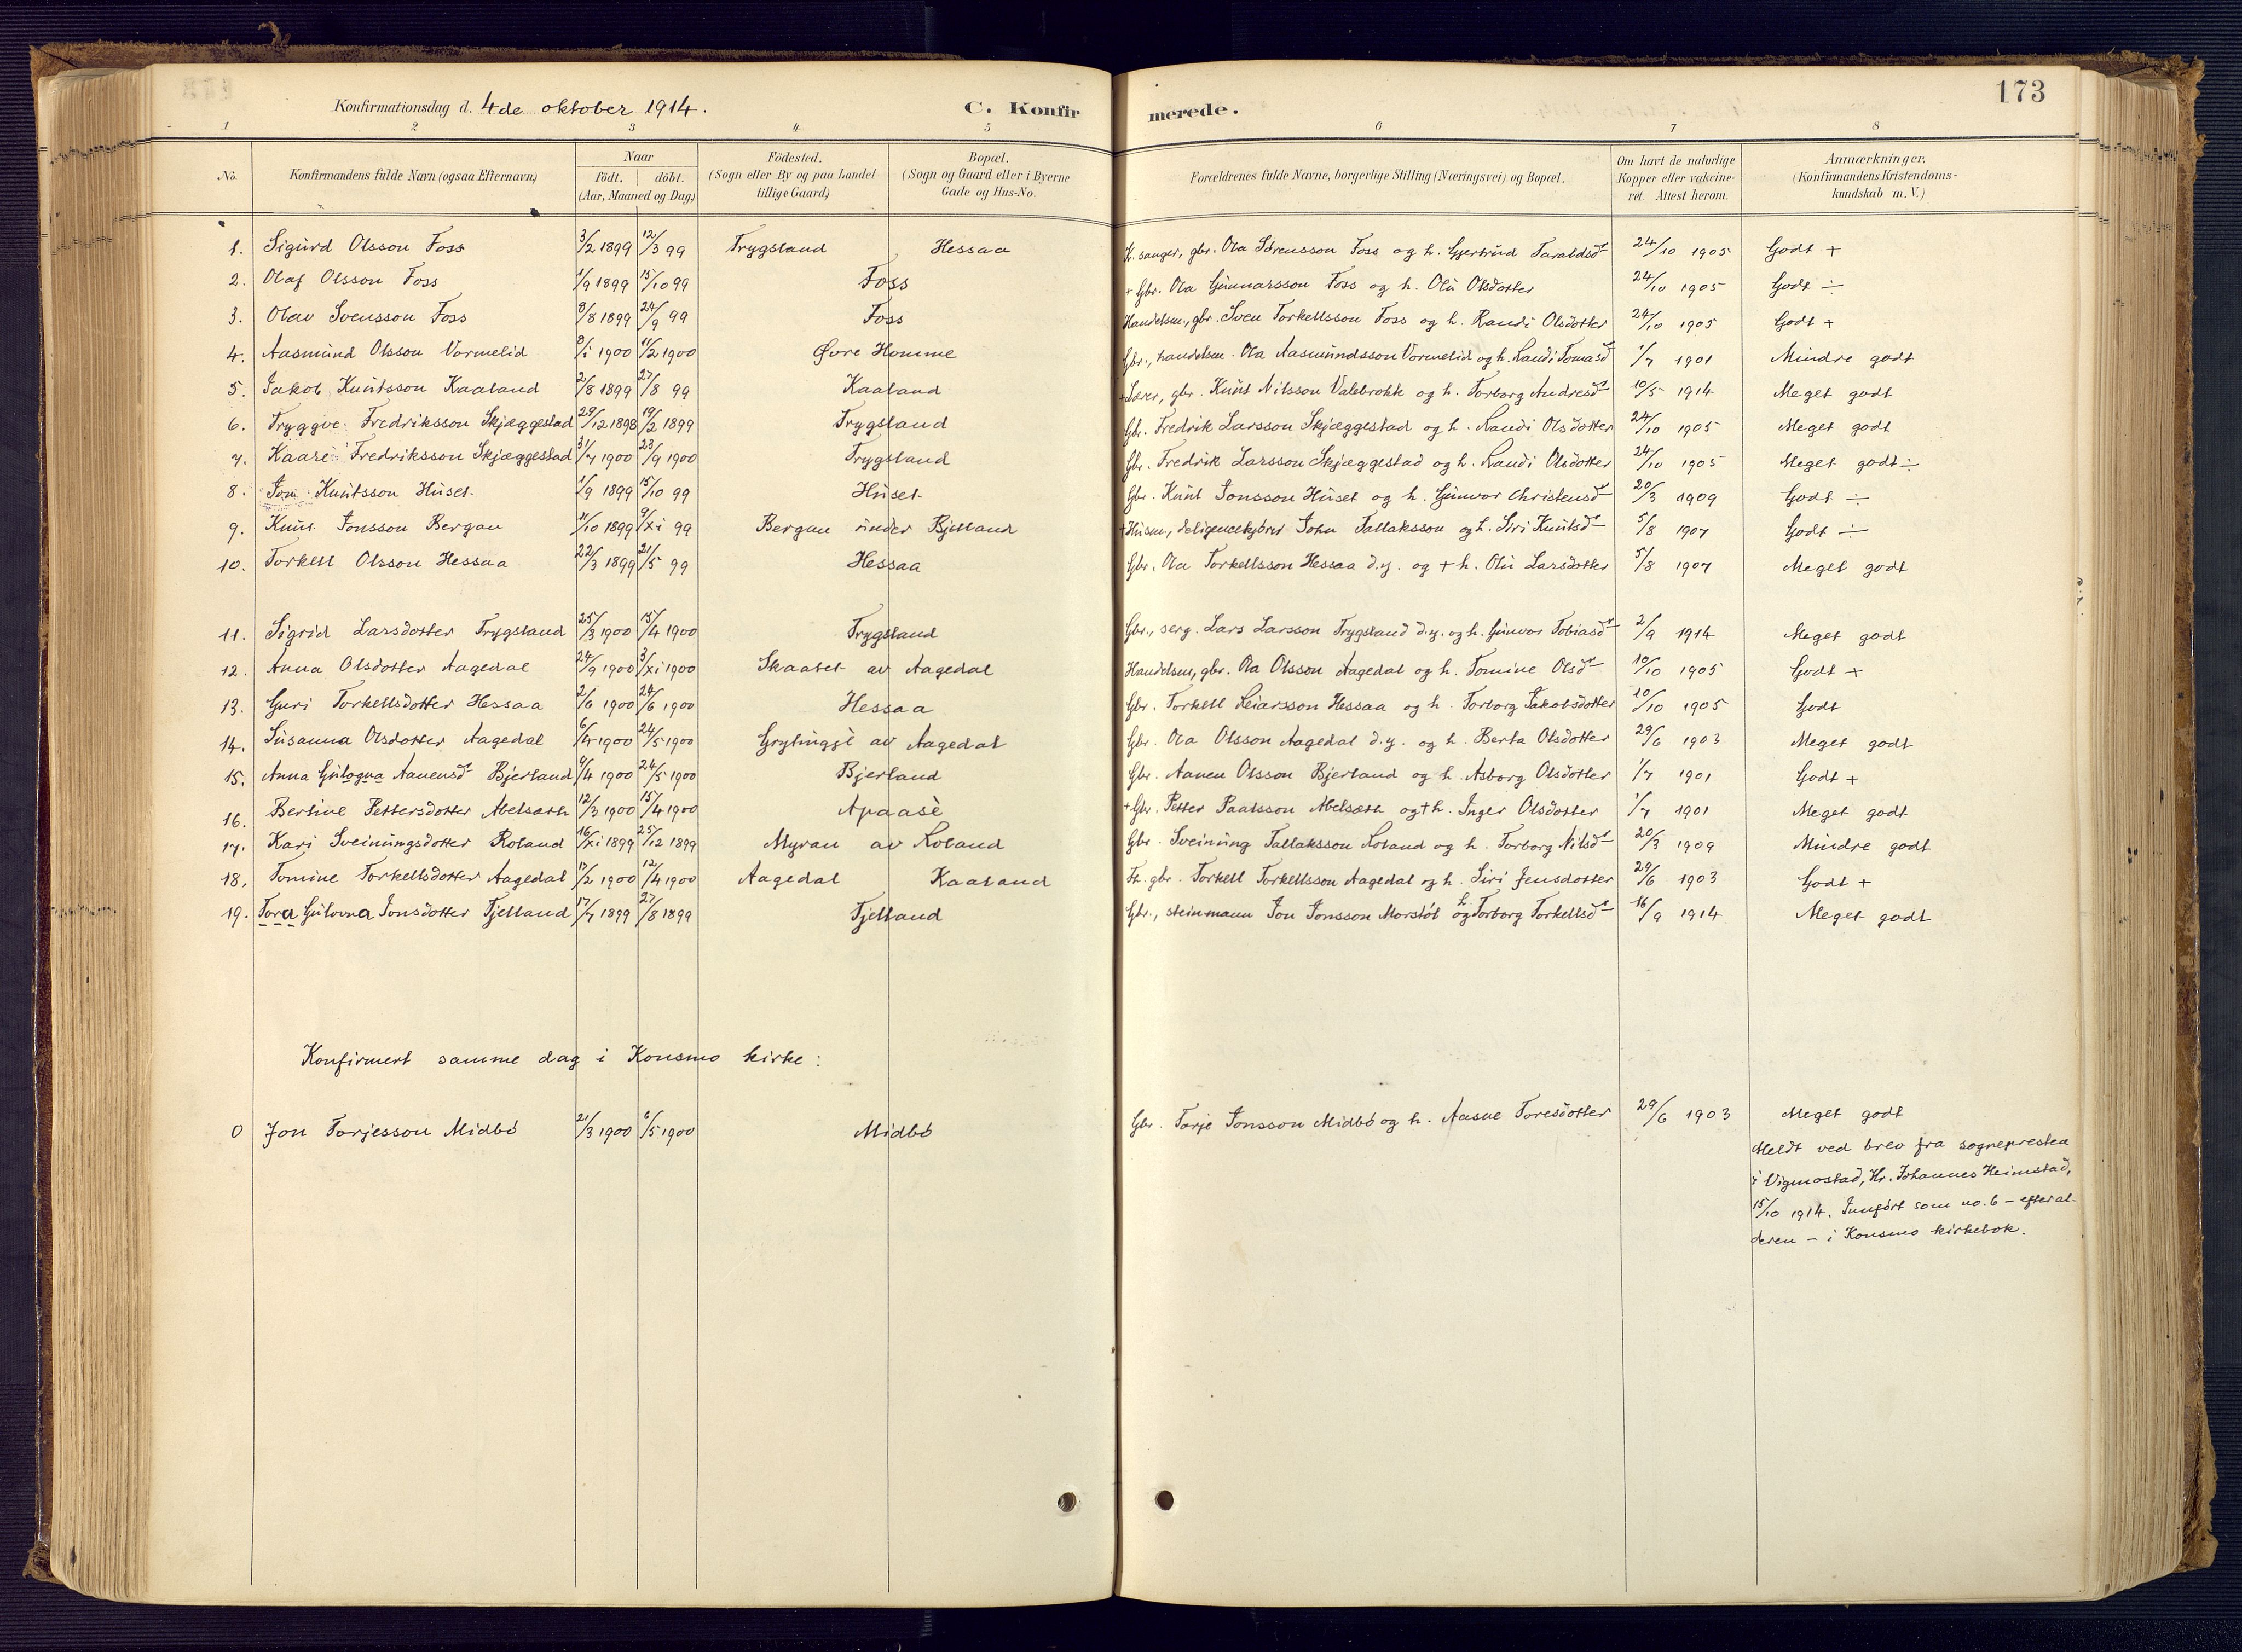 173
Konfirmationsdag d. 4de oktober 1914. C. Konfirmerede.
1 2 3 4 5 6 7 8
No. Konfirmandens fulde Navn (ogsaa Efternavn) Naar Födt. döbt. (Aar, Maaned og Dag) Födested. (Sogn eller By og paa Landet tillige Gaard) Bopæl. (Sogn og Gaard eller i Byerne Gade og Hus-No. Forældrenes fulde Navne, borgerlige Stilling (Næringsvei) og Bopæl. Om havt de naturlige Kopper eller vakcineret. Attest herom. Anmærkninger. (Konfirmandens Kristendomskundskab m. V.)
1. Sigurd Olsson Foss 3/2 1899 12/3 99 Trygsland Hessaa K. sanger, gbr. Ola Sörensson Foss og h. Gjertrud Taraldsdr 24/10 1905 Godt +
2. Olaf Olsson Foss 1/9 1899 15/10 99 Foss + Gbr. Ola Gunnarsson Foss og h. Olù Olsdotter 24/10 1905 Godt ÷
3. Olav Svensson Foss 8/8 1899 24/9 99 Foss Handelsm., gbr. Sven Torkellsson Foss og h. Randi Olsdotter 24/10 1905 Godt +
4. Aasmund Olsson Vormelid 8/i 1900 11/2 1900 Øvre Homme Gbr., handelsm. Ola Aasmundsson Vormelid og h. Randi Tomasdr 1/7 1901 Mindre godt
5. Jakob Knutsson Kaaland 2/8 1899 27/8 99 Kaaland + Lærer, gbr. Knut Nilsson Valebrokk og h. Torborg Andresdr 10/5 1914 Meget godt
6. Tryggve Fredriksson Skjæggestad 29/12 1898 19/2 1899 Trygsland Gbr. Fredrik Larsson Skjæggestad og h. Randi Olsdotter 24/10 1905 Meget godt
7. Kaare Fredriksson Skjæggestad 31/7 1900 23/9 1900 Trygsland Gbr. Fredrik Larsson Skjæggestad og h. Randi Olsdotter 24/10 1905 Meget godt ÷
8. Jon Knutsson Huset 1/9 1899 15/10 99 Huset Gbr. Knut Jonsson Huset og h. Gunvor Christensdr 20/3 1909 Godt ÷
9. Knut Jonsson Bergan 11/10 1899 9/xi 99 Bergan under Bjelland + Husm., deligencekjörer John Tallaksson og h. Siri Knutsdr 5/8 1907 Godt ÷
10. Torkell Olsson Hessaa 22/3 1899 21/5 99 Hessaa Gbr. Ola Torkellsson Hessaa d.y. og + h. Olù Larsdotter 5/8 1907 Meget godt
11. Sigrid Larsdotter Trygsland 25/3 1900 15/4 1900 Trygsland Gbr., serg. Lars Larsson Trygsland d.y. og h. Gunvor Tobiasdr 2/9 1914 Meget godt
12. Anna Olsdotter Aagedal 24/9 1900 3/xi 1900 Skaatet av Aagedal Handelsm., gbr. Ola Olsson Aagedal og h. Tomine Olsdr 10/10 1905 Godt +
13. Guri Torkellsdotter Hessaa 2/6 1900 24/6 1900 Hessaa Gbr. Torkell Reiarsson Hessaa og h. Torborg Jakobsdotter 10/10 1905 Godt
14. Susanna Olsdotter Aagedal 6/4 1900 24/5 1900 av Aagedal Gbr. Ola Olsson Aagedal d.y. og h. Berta Olsdotter 29/6 1903 Meget godt
15. Anna Gulogna Aanensdr Bjerland 9/4 1900 24/5 1900 Bjerland Gbr. Aanen Olsson Bjerland og h. Asborg Olsdotter 1/7 1901 Godt +
16. Bertine Pettersdotter Abelsæth 12/3 1900 15/4 1900 Apaasè + Gbr. Petter Paalsson Abelsæth og + h. Inger Olsdotter 1/7 1901 Meget godt
17. Kari Sveinungsdotter Roland 16/xi 1899 25/12 1899 Myran av Roland Gbr. Sveinung Tallaksson Roland og h. Torborg Nilsdr 20/3 1909 Mindre godt
18. Tomine Torkellsdotter Aagedal 17/2 1900 12/4 1900 Aagedal Kaaland Fr. gbr. Torkell Torkellsson Aagedal og h. Siri Jensdotter 29/6 1903 Godt +
19. Tora Gulovna Jonsdotter Fjelland 17/7 1899 27/8 1899 Fjelland Gbr., steinmann Jon Jonsson Morstöl og h. Torborg Torkellsdr 16/9 1914 Meget godt
Konfirmert samme dag i Konsmo kirke:
0 Jon Torjesson Midbö 21/3 1900 6/5 1900 Midbö Gbr. Torje Jonsson Midbö og h. Aasne Toresdotter 29/6 1903 Meget godt
Meldt ved brev fra sognepresten
i Vigmostad, Hr. Johannes Heimstad,
15/10 1914. Innfört som no. 6 – efter al-
deren – i Konsmo kirkebok.